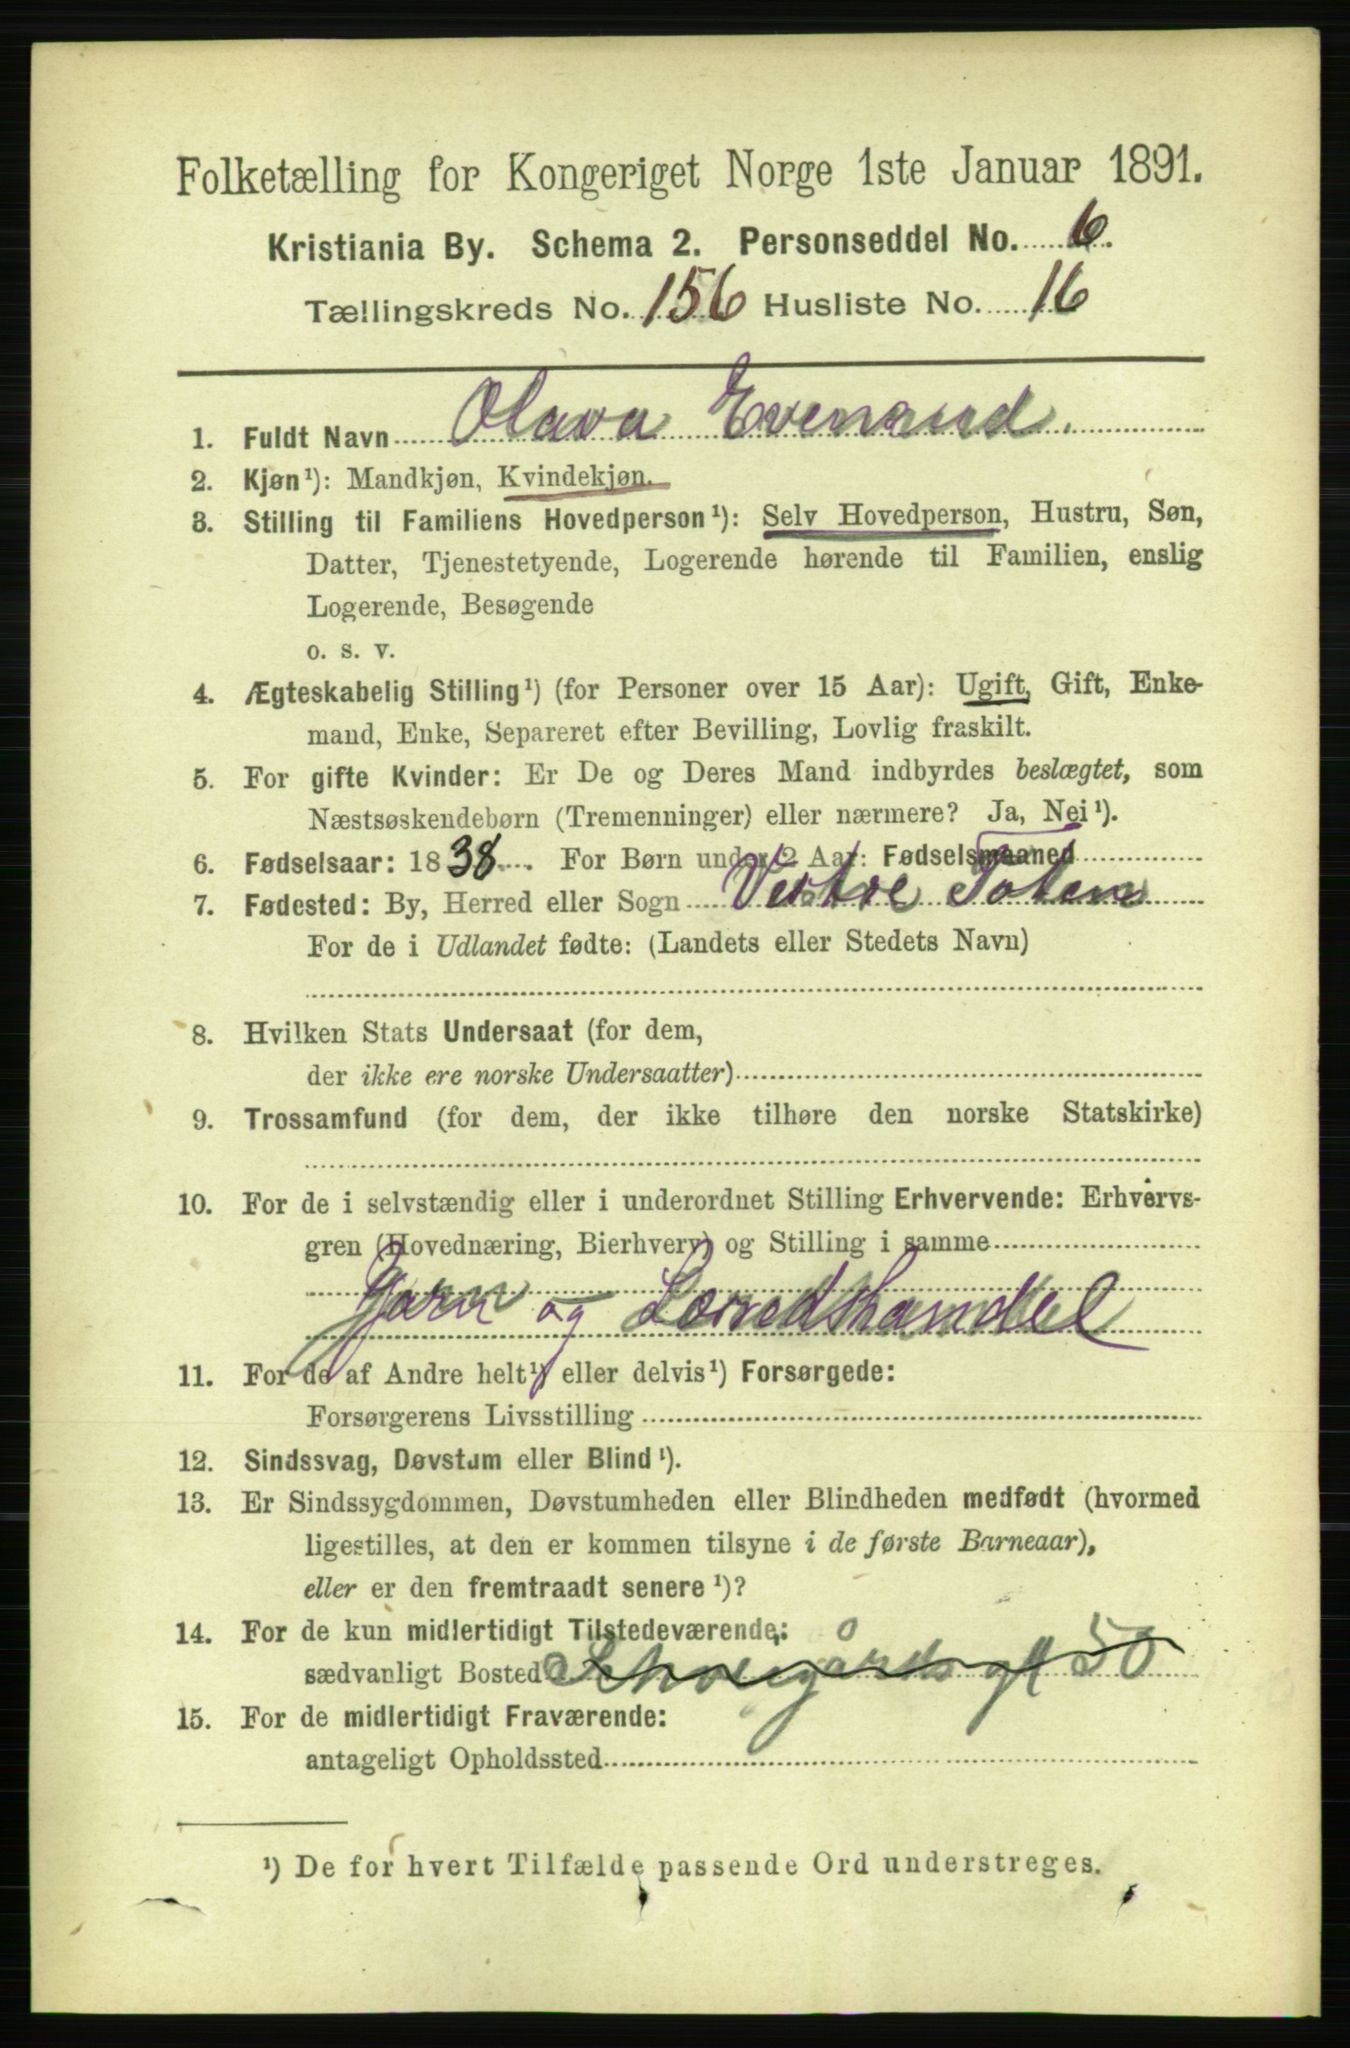 Folketælling for Kongeriget Norge 1ste Januar 1891.
Kristiania By. Schema 2. Personseddel No. 6.
Tællingskreds No. 156 Husliste No. 16
1. Fuldt Navn Olava Evensrud.
2. Kjøn¹): Mandkjøn, Kvindekjøn.
3. Stilling til Familiens Hovedperson¹): Selv Hovedperson, Hustru, Søn,
Datter, Tjenestetyende, Logerende hørende til Familien, enslig
Logerende, Besøgende
o. s. v.
4. Ægteskabelig Stilling¹) (for Personer over 15 Aar): Ugift, Gift, Enke-
mand, Enke, Separeret efter Bevilling, Lovlig fraskilt.
5. For gifte Kvinder: Er De og Deres Mand indbyrdes beslægtet, som
Næstsøskendebørn (Tremenninger) eller nærmere? Ja, Nei¹).
6. Fødselsaar: 1838. For Børn under 2 Aar: Fødselsmaaned
7. Fødested: By, Herred eller Sogn Vestre Toten
For de i Udlandet fødte: (Landets eller Stedets Navn)
8. Hvilken Stats Undersaat (for dem,
der ikke ere norske Undersaatter)
9. Trossamfund (for dem, der ikke tilhøre den norske Statskirke)
10. For de i selvstændig eller i underordnet Stilling Erhvervende: Erhvervs-
gren (Hovednæring, Bierhverv) og Stilling i samme
Garn og Lærredshandel
11. For de af Andre helt¹) eller delvis¹) Forsørgede:
Forsørgerens Livsstilling
12. Sindssvag, Døvstum eller Blind¹).
13. Er Sindssygdommen, Døvstumheden eller Blindheden medfødt (hvormed
ligestilles, at den er kommen tilsyne i de første Barneaar),
eller er den fremtraadt senere¹)?
14. For de kun midlertidigt Tilstedeværende:
sædvanligt Bosted Schveigårds gt 50
15. For de midlertidigt Fraværende:
antageligt Opholdssted
¹) De for hvert Tilfælde passende Ord understreges.